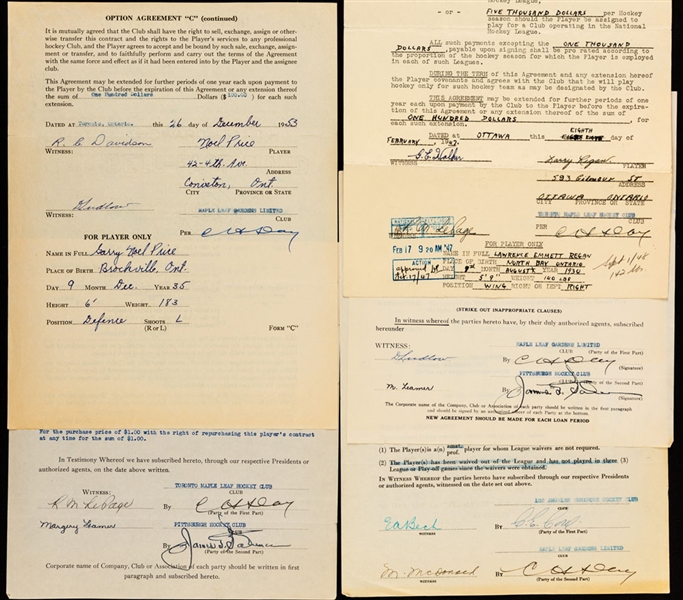 OPTION AGREEMENT "C" (continued)
It is mutually agreed that the Club shall have the right to sell, exchange, assign or other-
wise transfer this contract and the rights to the Player's services to any professional
hockey Club, and the Player agrees to accept and be bound by such sale, exchange, assign-
ment or transfer, and to faithfully perform and carry out the terms of the Agreement
with the same force and effect as if it had been entered into by the Player and the assignee
club.
This Agreement may be extended for further periods of one year each upon payment to
the Player by the Club before the expiration of this Agreement or any extension thereof
the sum of One Hundred Dollars Dollars ($100.00) for each such
extension.
DATED AT Toronto, Ontario. this 26 day of December 1953
R. E. Davidson Noel Price
WITNESS: PLAYER
42-4th Ave
ADDRESS
Coniston, Ont.
CITY PROVINCE OR STATE
WITNESS: MAPLE LEAF GARDENS LIMITED
DLudlow CLUB
PER C H Day
FOR PLAYER ONLY
NAME IN FULL Garry Noel Price
PLACE OF BIRTH Brockville, Ont.
DAY 9 MONTH Dec. YEAR 35
HEIGHT 6' WEIGHT 183
POSITION Defence SHOOTS L
(R or L) FORM "C"
For the purchase price of $1.00 with the right of repurchasing this player's contract
at any time for the sum of $1.00.
In Testimony Whereof we have subscribed hereto, through our respective Presidents or
authorized agents, on the date above written.
TORONTO MAPLE LEAF HOCKEY CLUB
WITNESS: CLUB
R M LePage By C H Day
(Party of the First Part)
Margery Leamer PITTSBURGH HOCKEY CLUB
CLUB
By
(Party of the Second Part)
Corporate name of Company, Club or Association of each party should be written in first
paragraph and subscribed hereto.
Hockey League.
- or - FIVE THOUSAND DOLLARS per Hockey
season should the Player be assigned to
play for a Club operating in the National
Hockey League.
ALL such payments excepting the ONE THOUSAND
DOLLARS, payable upon signing shall be pro rated according to
the proportion of the hockey season for which the Player is employed
in each of such Leagues.
DURING THE TERM of this Agreement and any extension hereof
the Player covenants and agrees with the Club that he will play
hockey only for such hockey team as may be designated by the Club.
THIS AGREEMENT may be extended for further periods of one
year each upon payment by the Club to the Player before the expira-
tion of this Agreement or any extension thereof of the sum of
ONE HUNDRED DOLLARS for
each such extension.
DATED at OTTAWA this EIGHTH day of
FEBRUARY, 1947.
WITNESS Larry Regan
PLAYER
593 Gilmour St
ADDRESS
OTTAWA ONTARIO
CITY PROVINCE OR STATE
TORONTO MAPLE LEAF HOCKEY CLUB
CLUB
R M LePage PER C H Day
FEB 17 9 20 AM '47
FOR PLAYER ONLY
ACTION
approved
Oct. 17/47
NAME IN FULL LAWRENCE EMMETT REGAN
PLACE OF BIRTH NORTH BAY ONTARIO
DAY 9TH MONTH AUGUST YEAR 1930
HEIGHT 5' 9" WEIGHT 140 LBS
POSITION WING RIGHT OR LEFT RIGHT
Sept 1/48
142 lbs.
(STRIKE OUT INAPPROPRIATE CLAUSES)
In witness whereof the parties hereto have, by their duly authorized agents, subscribed
hereunder
MAPLE LEAF GARDENS LIMITED
WITNESS: CLUB (Party of the First Part)
DLudlow By C H Day
(Signature)
PITTSBURGH HOCKEY CLUB
CLUB (Party of the Second Part)
M. Leamer By
(Signature)
The Corporate name of the Company, Club or Association of each party should be written in the first paragraph
and should be signed by an authorized officer of each Party at the bottom.
NEW AGREEMENT SHOULD BE MADE FOR EACH LOAN PERIOD
(1) The Player(s) is a(n) amat. prof. player for whom League waivers are not required.
(2) The Player(s) has been waived out of the League and has not played in three (3)
League or Play-off games since the waivers were obtained.
IN WITNESS WHEREOF the parties hereto have subscribed through their respective Presidents
or authorized agents, witnessed on the date set out above.
LOS ANGELES MONARCHS HOCKEY CLUB
CLUB
By
WITNESS (Party of the First Part)
MAPLE LEAF GARDENS LIMITED
CLUB
M. McDonald By C H Day
WITNESS (Party of the Second Part)